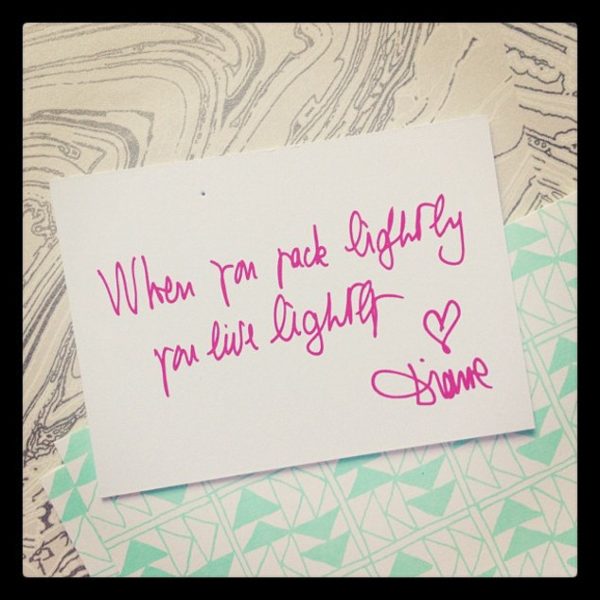 When you pack lightly
you live lightly
♡
Diane